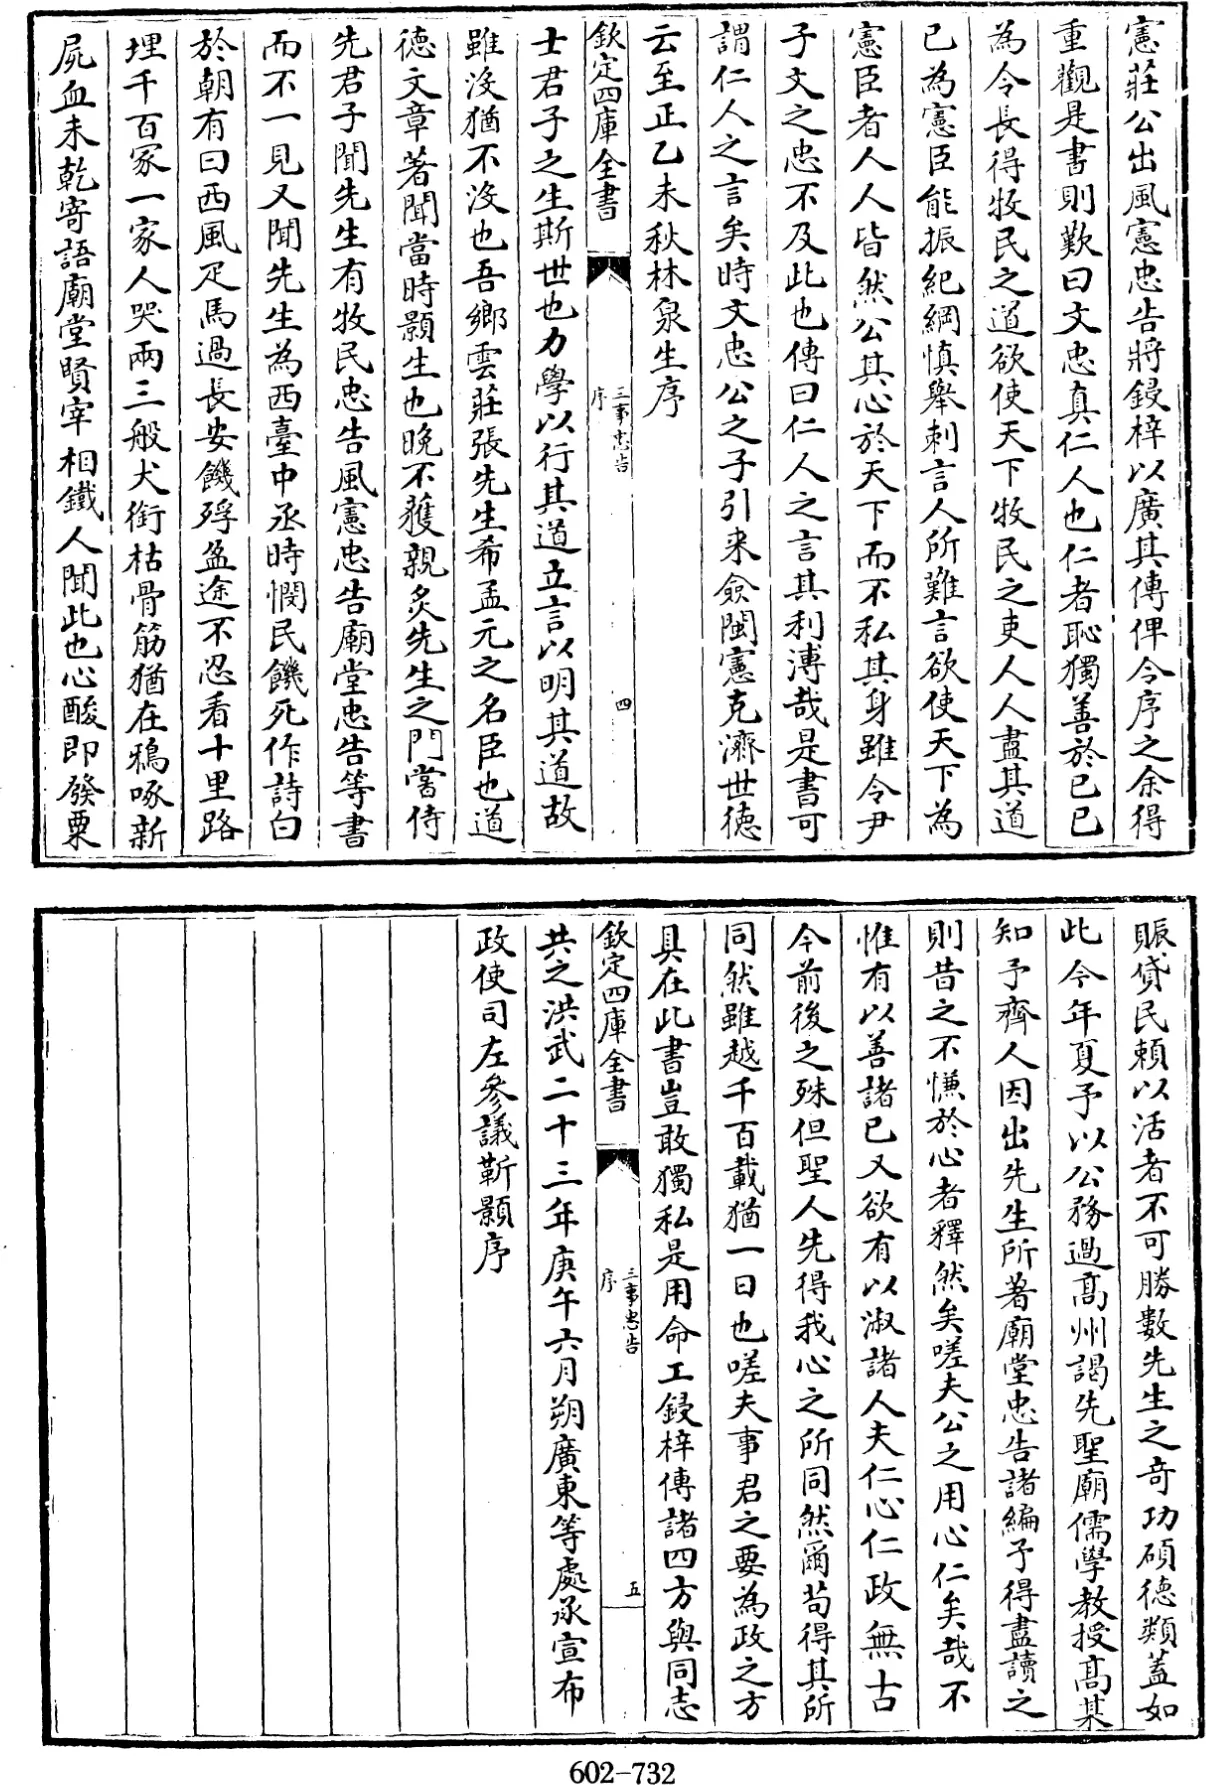 憲莊公出風憲忠告將鋟梓以廣其傳俾令序之余得
重觀是書則歎曰文忠真仁人也仁者恥獨善於已已
為令長得牧民之道欲使天下牧民之吏人人盡其道
已為憲臣能振紀綱慎舉刺言人所難言欲使天下為
憲臣者人人皆然公其心於天下而不私其身雖令尹
子文之忠不及此也傳曰仁人之言其利溥哉是書可
謂仁人之言矣時文忠公之子引来僉閩憲克濟世徳
云至正乙未秋林泉生序
欽定四庫全書
三事忠告
序
四
士君子之生斯世也力學以行其道立言以明其道故
雖沒猶不沒也吾鄉雲莊張先生希孟元之名臣也道
徳文章著聞當時顥生也晚不獲親炙先生之門嘗侍
先君子聞先生有牧民忠告風憲忠告廟堂忠告等書
而不一見又聞先生為西臺中丞時憫民饑死作詩白
於朝有曰西風疋馬過長安饑殍盈途不忍看十里路
埋千百冢一家人哭兩三般犬銜枯骨筋猶在鴉啄新
屍血未乾寄語廟堂賢宰相鐵人聞此也心酸即發粟
賑貸民頼以活者不可勝數先生之奇功碩徳類蓋如
此今年夏予以公務過髙州謁先聖廟儒學教授髙某
知予齊人因出先生所著廟堂忠告諸編予得盡讀之
則昔之不慊於心者釋然矣嗟夫公之用心仁矣哉不
惟有以善諸已又欲有以淑諸人夫仁心仁政無古
今前後之殊但聖人先得我心之所同然爾茍得其所
同然雖越千百載猶一日也嗟夫事君之要為政之方
具在此書豈敢獨私是用命工鋟梓傳諸四方與同志
欽定四庫全書
三事忠告
序
五
共之洪武二十三年庚午六月朔廣東等處承宣布
政使司左參議靳顥序
602-732